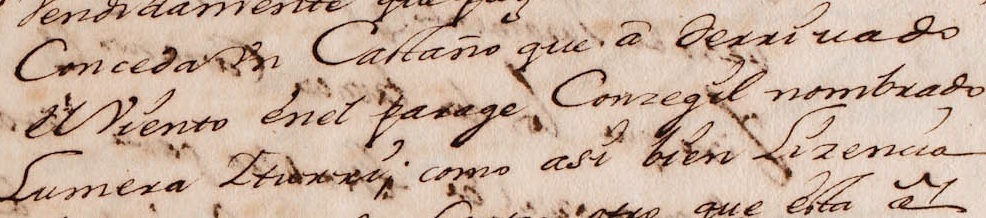 Rendidamente que
Conceda un Castaño que â derrivado
el Viento ênel parage Conzegil nombrado
Lumera Iturri, como asi bien Lizencia
que esta â